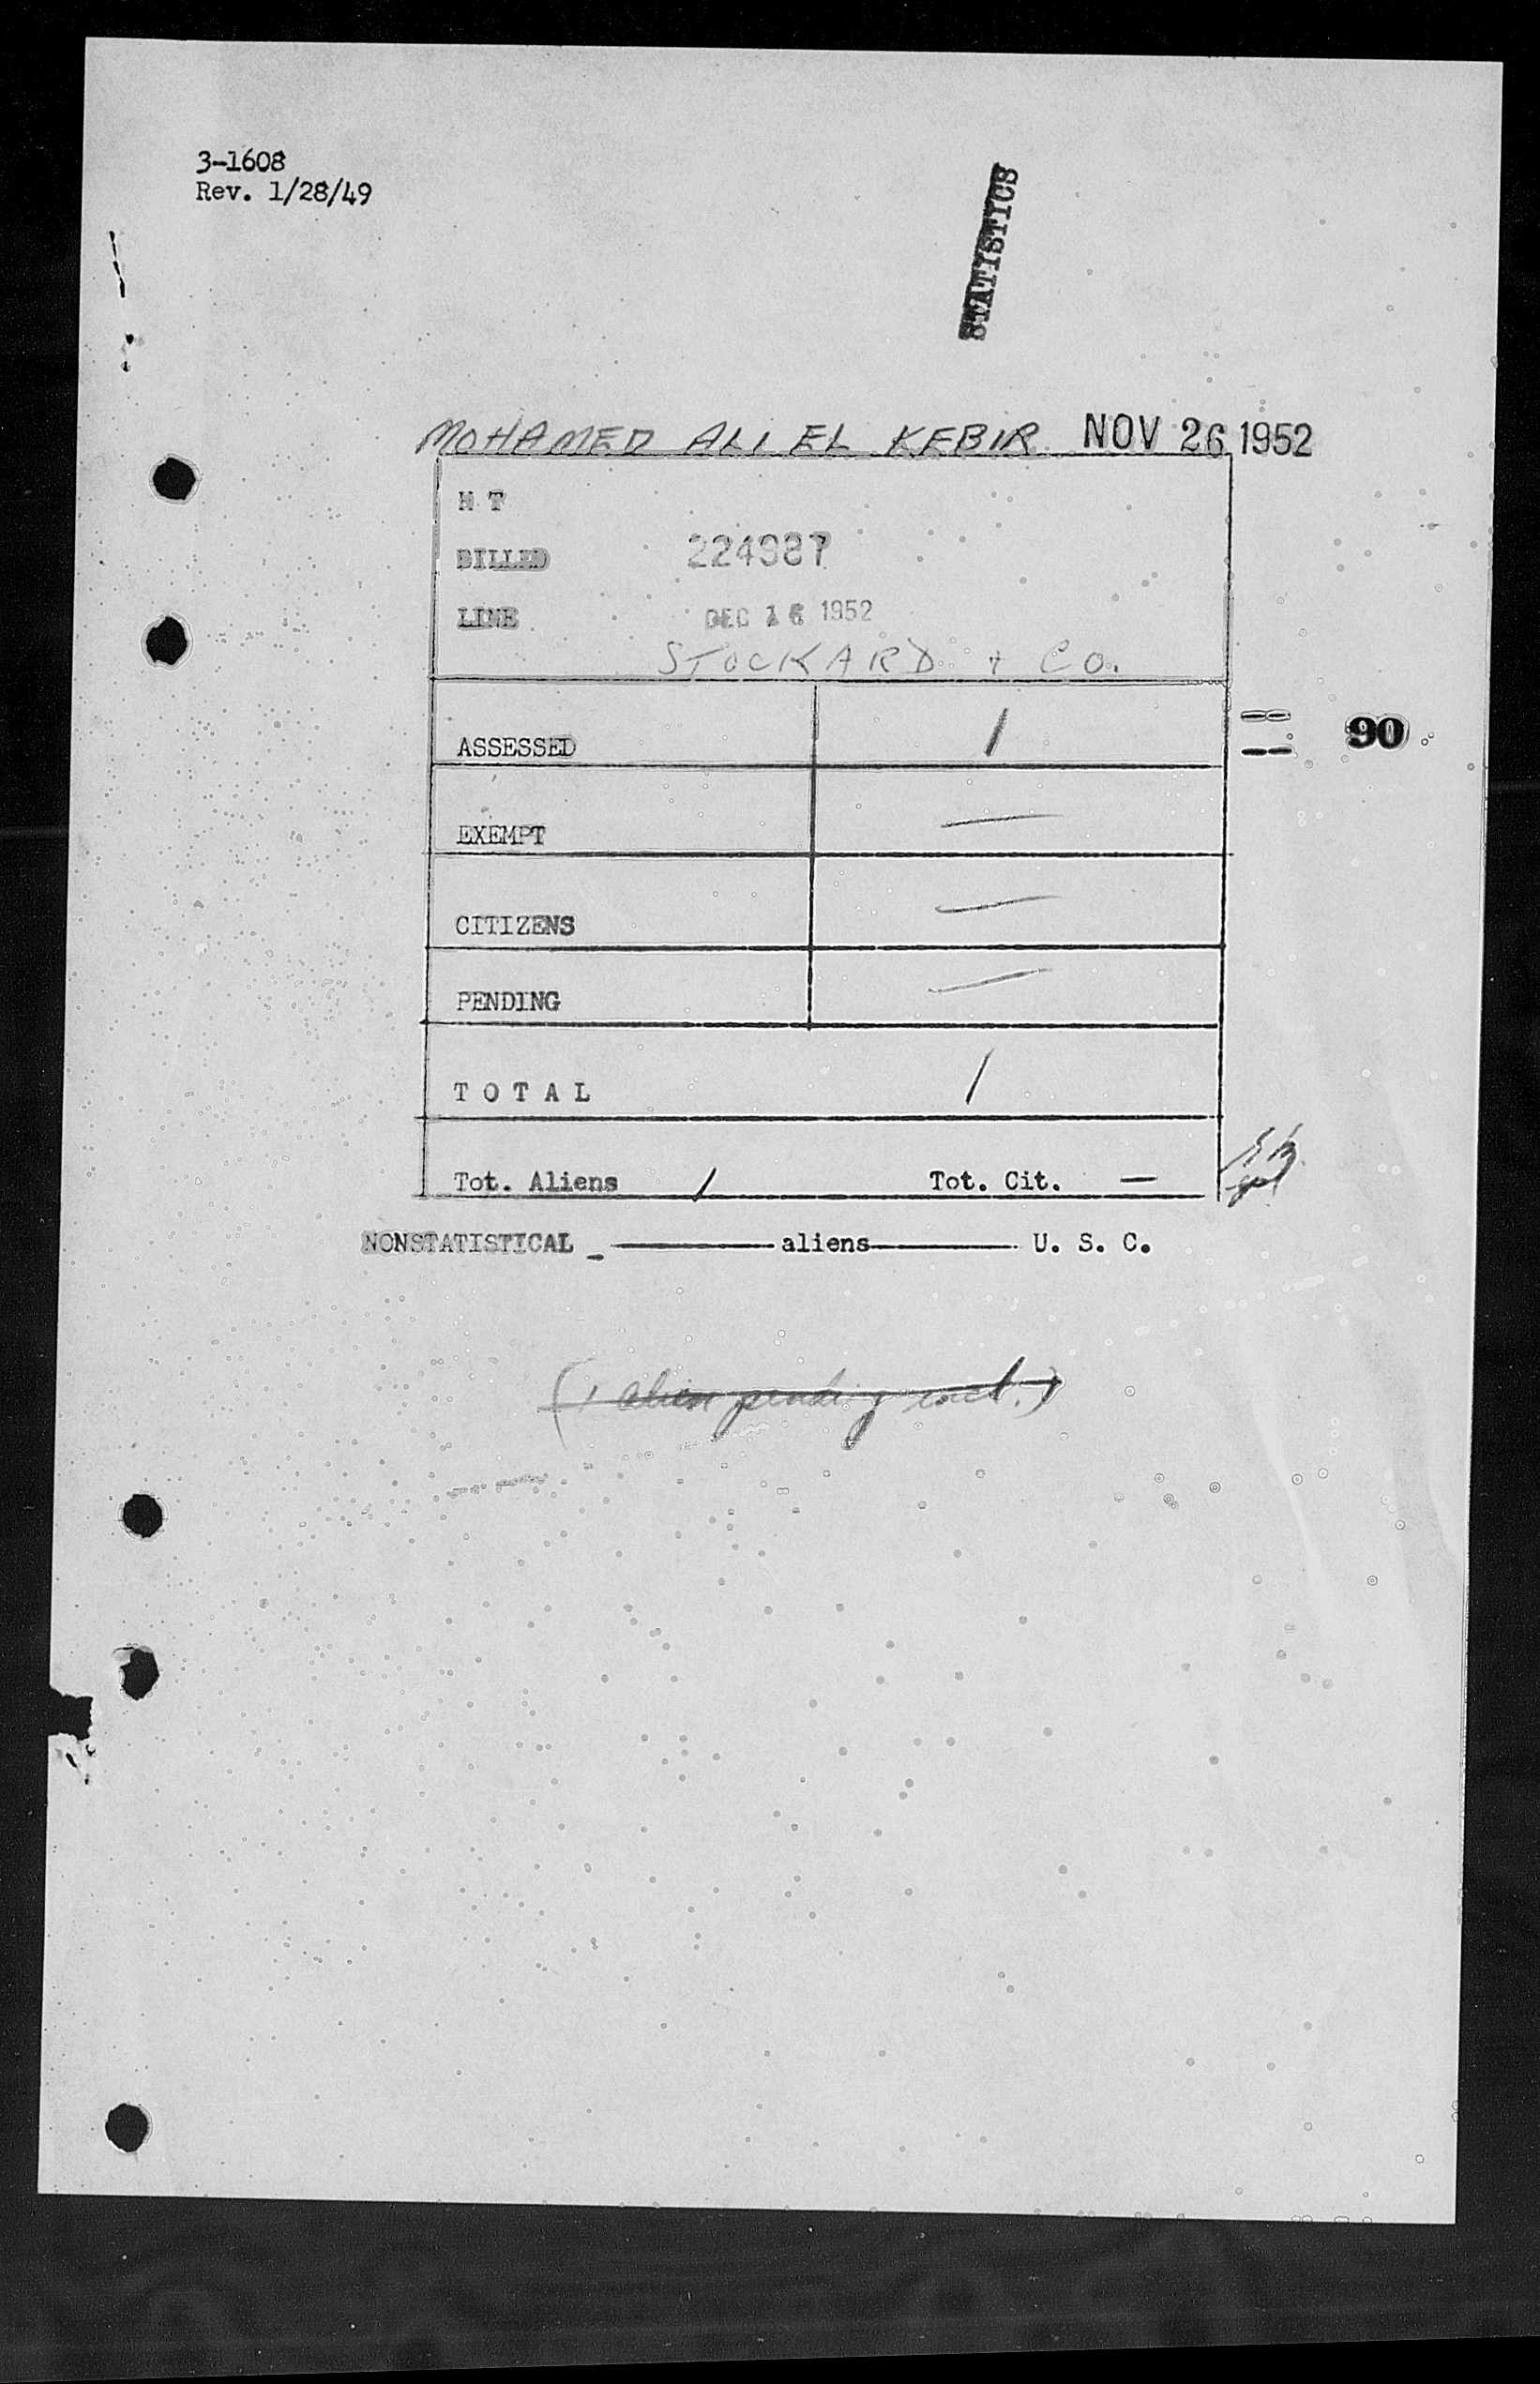 3-1608
Rev. 1/28/49
STATISTICS
MOHAMED ALI EL KEBIR NOV 26 1952
H T
BILLED 224987
LINE DEC 16 1952
STOCKARD + CO.
ASSESSED 1
90
EXEMPT —
CITIZENS —
PENDING —
TOTAL 1
Tot. Aliens 1 Tot. Cit. —
NONSTATISTICAL _ ———— aliens ———— U. S. C.
(1 alien pending incl.)